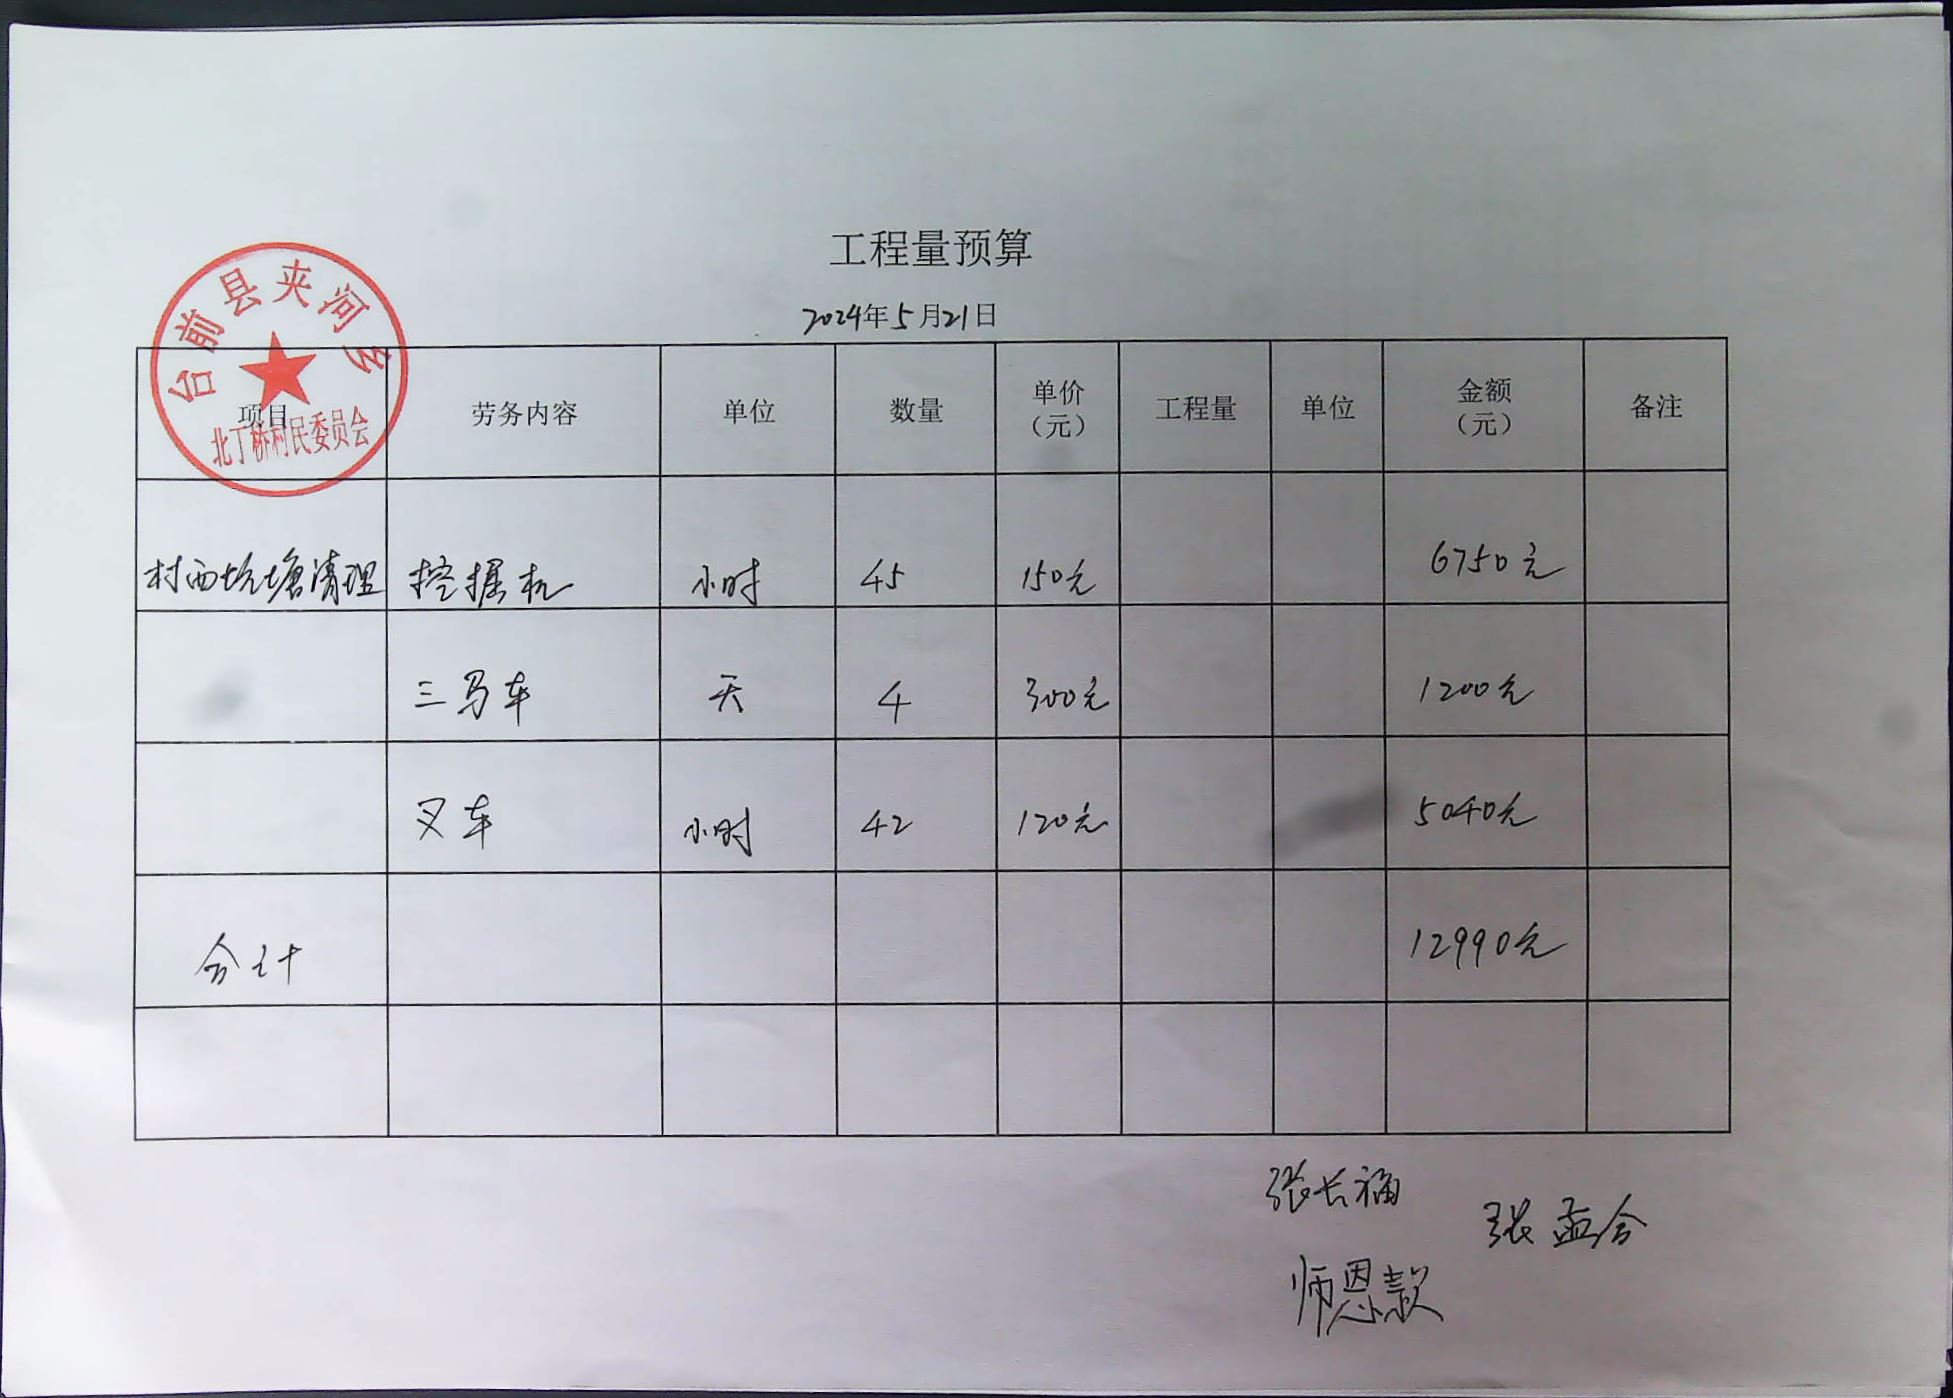 工程量预算
2024年5月21日
台前县夹河乡
北丁桥村民委员会
项目 劳务内容 单位 数量 单价（元） 工程量 单位 金额（元） 备注
村西坑塘清理 挖掘机 小时 45 150元 6750元
三马车 天 4 300元 1200元
叉车 小时 42 120元 5040元
合计 12990元
张长福
张孟合
师恩款